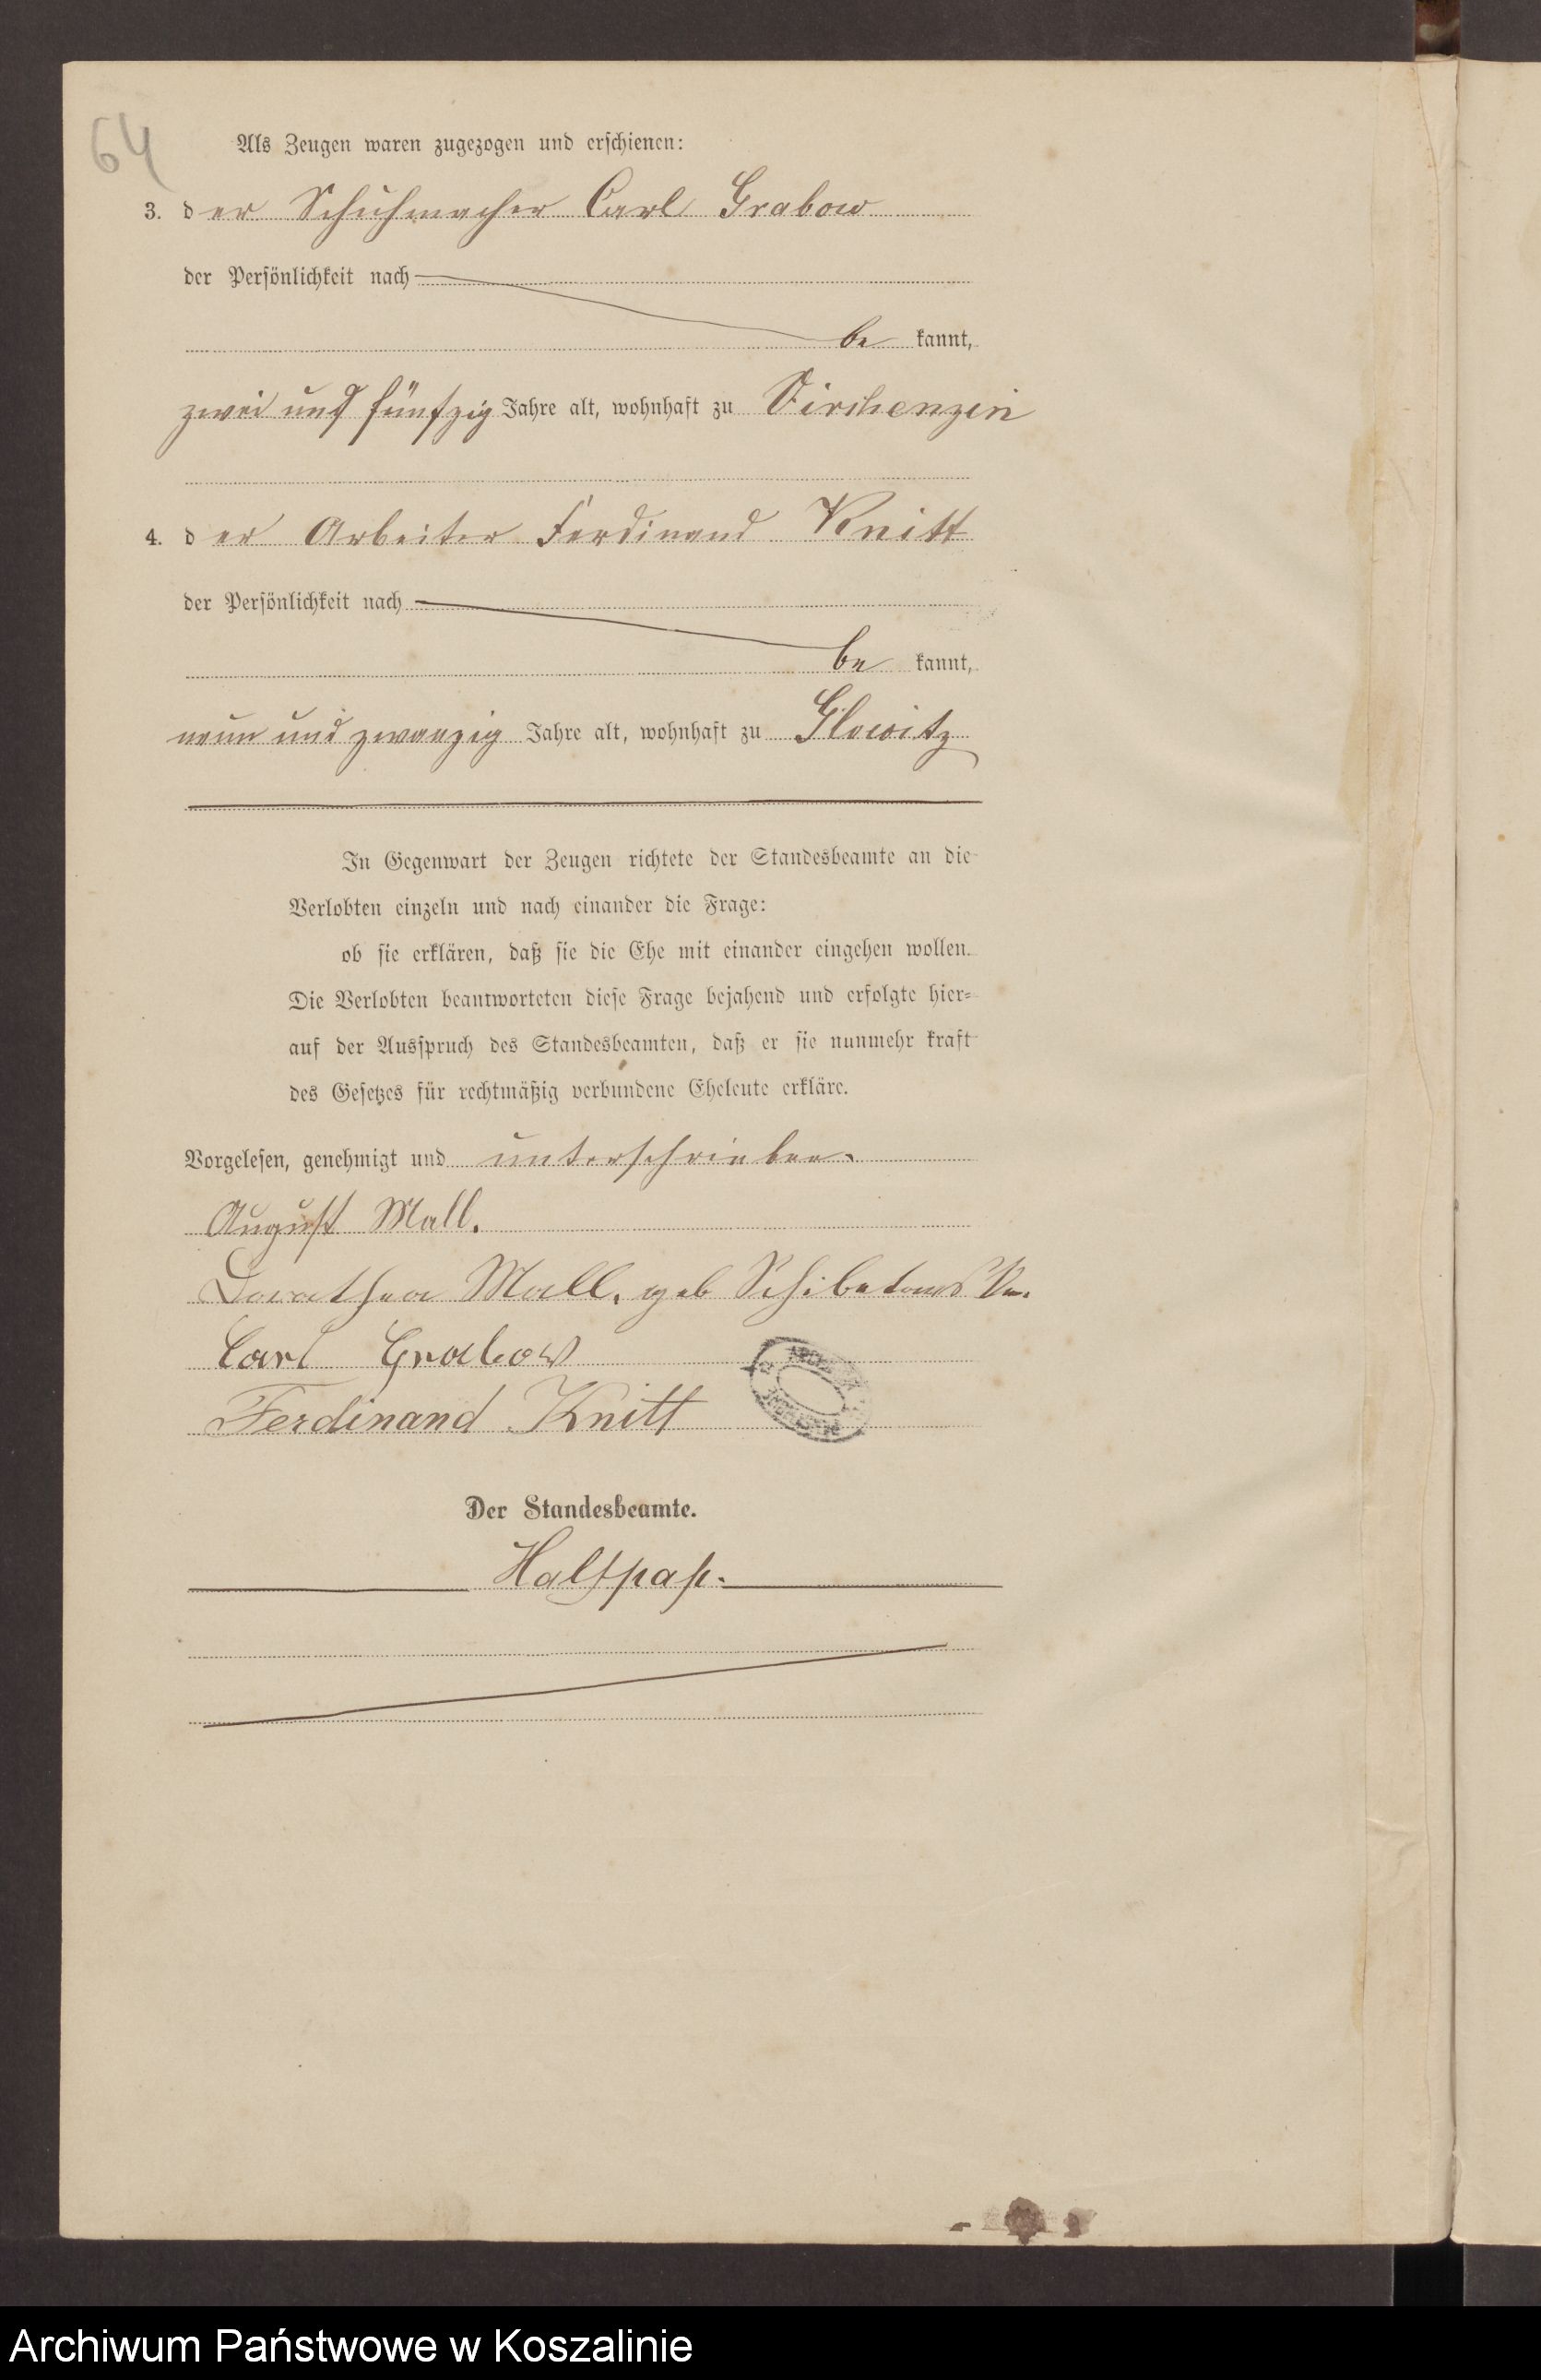 64
Als Zeugen waren zugezogen und erschienen:
3. der Schuhmacher Carl Grabow
der Persönlichkeit nach
be kannt,
zwei und fünfzig Jahre alt, wohnhaft zu Virchenzin
4. der Arbeiter Ferdinand Knitt
der Persönlichkeit nach
be kannt,
neun und zwanzig Jahre alt, wohnhaft zu Glowitz
In Gegenwart der Zeugen richtete der Standesbeamte an die
Verlobten einzeln und nach einander die Frage:
ob sie erklären, daß sie die Ehe mit einander eingehen wollen.
Die Verlobten beantworteten diese Frage bejahend und erfolgte hier=
auf der Ausspruch des Standesbeamten, daß er sie nunmehr kraft
des Gesetzes für rechtmäßig verbundene Eheleute erkläre.
Vorgelesen, genehmigt und unterschrieben.
August Mall.
Dorothea Mall, geb
Carl Grabow
Ferdinand Knitt
Der Standesbeamte.
Halfpap.
Archiwum Państwowe w Koszalinie